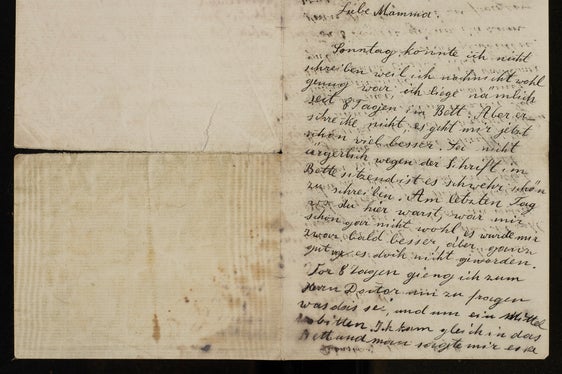 Liebe Mamma!
Sonntag konnte ich nicht
schreiben weil ich noch nicht wohl
genug war, ich liege nämlich
seit 8 Tagen im Bett. Aber er
schrecke nicht es geht mir jetzt
schon viel besser. Sei nicht
ärgerlich wegen der Schrift, im
Bette sitzend ist es schwehr schön
zu schreiben. Am letzten Tag
wo du hier warst, war mir
schon gar nicht wohl es wurde mir
zwar bald besser, aber ganz
gut es doch nicht geworden.
Vor 8 Tagen gieng ich zum
Herrn Doctor um zu fragen
was das sei, und um ein Mittel
zu bitten. Ich kam gleich in das
Bett und man sagte mir es sei